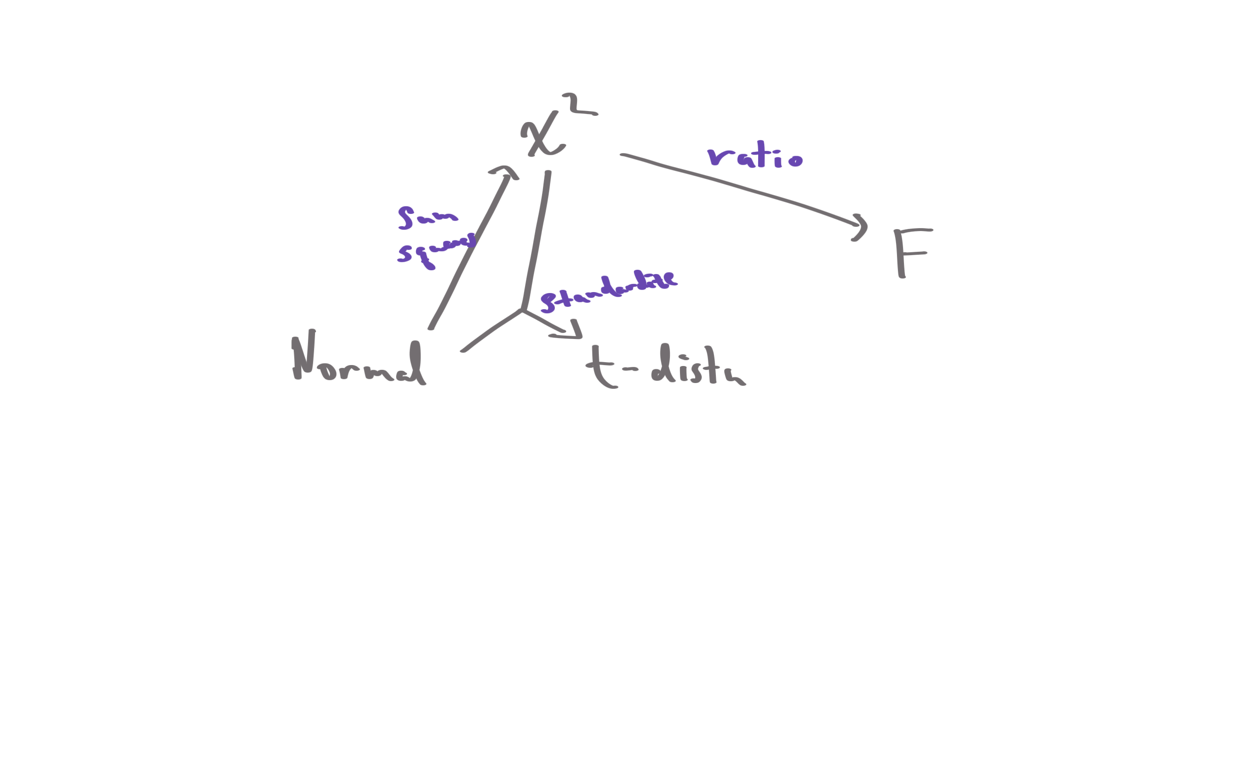 χ²
ratio
Sum
squares
F
standardize
Normal
t-distn